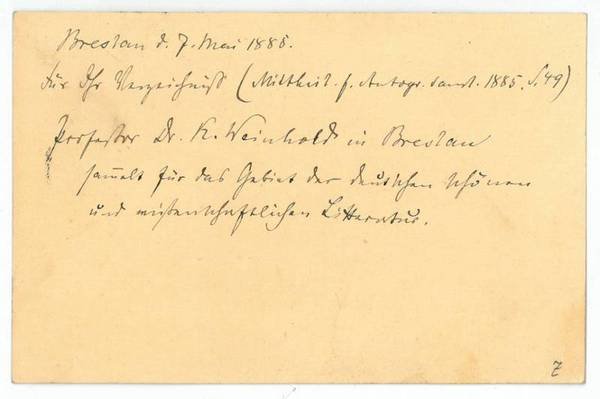 Breslau d. 7. Mai 1885.
Für Ihr Verzeichniß (Mittheil. f. Autogr. saml. 1885. S. 49)
Professor Dr. K. Weinhold in Breslau
sam̄elt für das Gebiet der deutschen schönen
und wißenschaftlichen Litteratur.
7